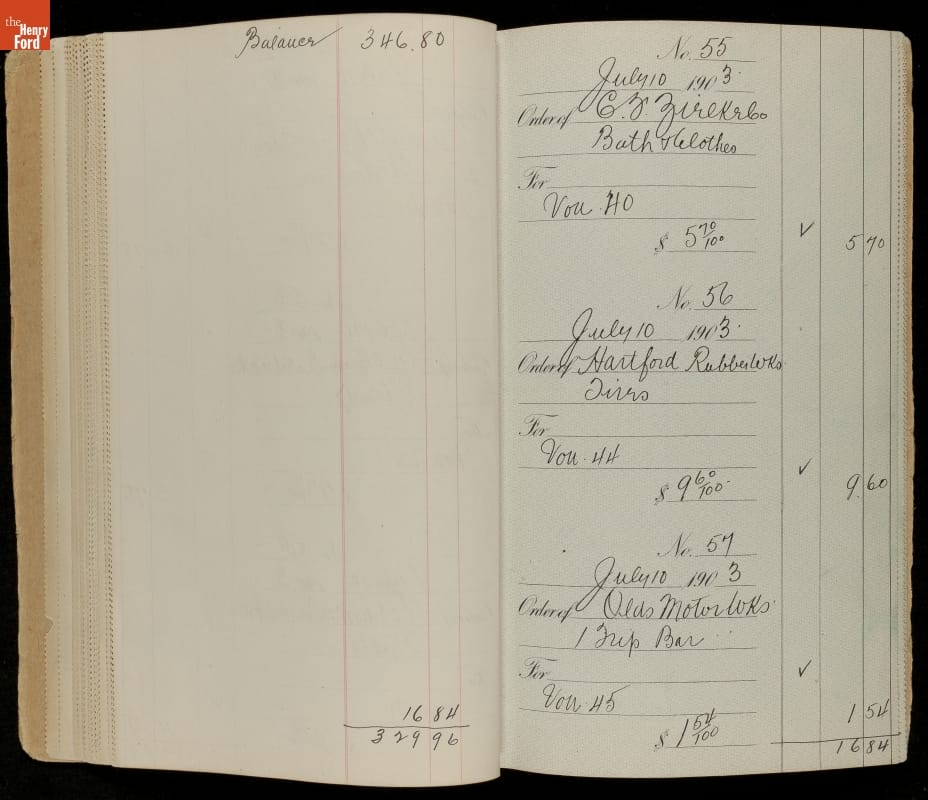 the
Henry
Ford
Balance 346.80
16 84
329 96
No. 55
July 10 1903
Order of C. F.
Bath
For
Vou. 40
$ 5 70/100 ✓ 5 70
No. 56
July 10 1903
Order of Hartford Rubber Wks
Tires
For
Vou. 44
$ 9 60/100 ✓ 9.60
No. 57
July 10 1903
Order of Olds Motor Wks.
1 Trip Bar
For ✓
Vou. 45
$ 1 54/100 1 54
16 84